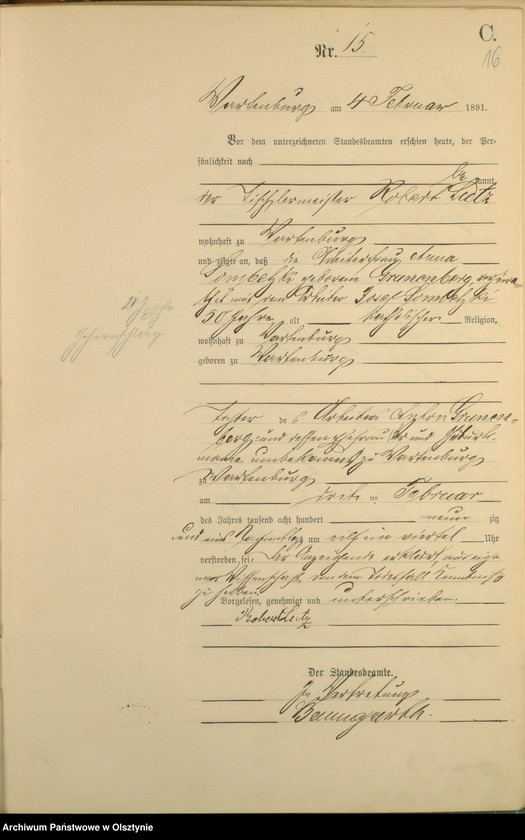 C.
16
Nr. 15.
Wartenburg am 4 Februar 1891.
Vor dem unterzeichneten Standesbeamten erschien heute, der Per-
sönlichkeit nach
be kannt,
der Tischlermeister Robert Lutz
wohnhaft zu Wartenburg
und zeigte an, daß die Arbeiterfrau Anna
geborene Grunenberg, verheira-
thet mit dem Arbeiter Josef
50 Jahre alt katholischer Religion,
wohnhaft zu Wartenburg
geboren zu Wartenburg
Tochter des Arbeiters Anton Grunen-
berg und dessen Ehefrau Vor und Geburts-
name unbekannt zu Wartenburg
zu Wartenburg
am drite n Februar
des Jahres tausend acht hundert neun zig
und eins Nachmittags um elf ein viertel Uhr
verstorben sei. Der Anzeigende erklärt, aus eige-
ner Wissenschaft von dem Todesfall Kenntniß
zu haben.
Vorgelesen, genehmigt und unterschrieben.
Robert Lutz
Der Standesbeamte.
In Vertretung
Baumgarth.
Archiwum Państwowe w Olsztynie